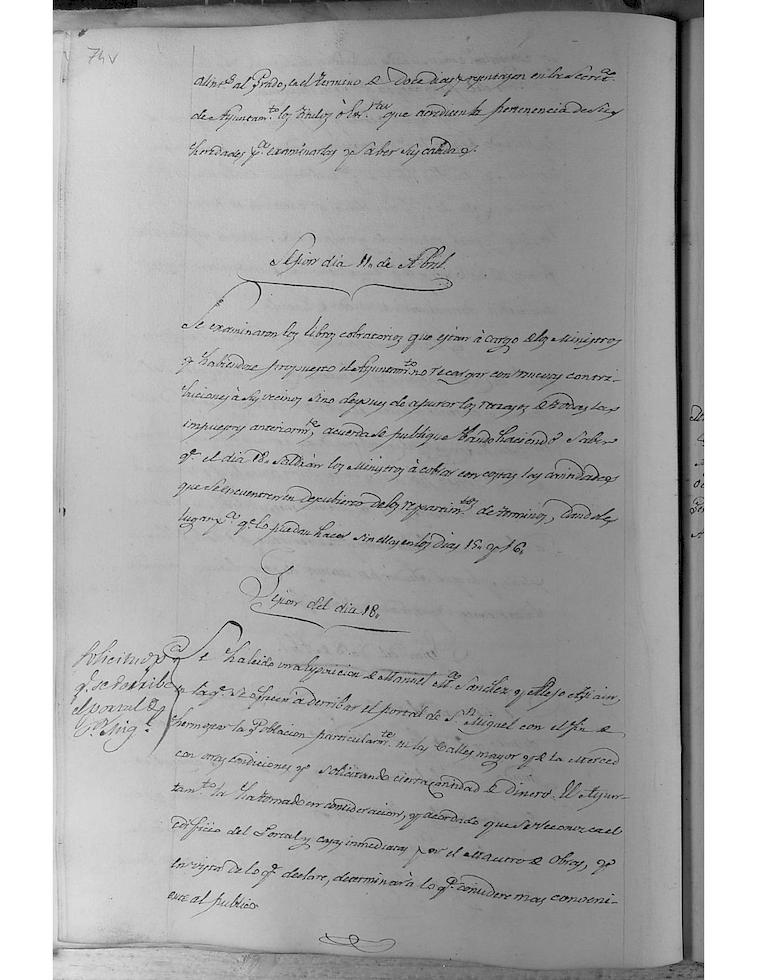 74v
al in.to al Prado, en el termino de doce dias presentasen en la Secret.a
de Ayuntam.to los titulos ò que acrediten la pertenencia de sus
heredades p.a examinarlos y saber sus cavidas.
Sesion dia 11. de Abril.
Se examinaron los libros cobratorios que estan à cargo de los Ministros
y habiendose propuesto el Ayuntam.to no recargar con nuevas contri-
buciones à sus vecinos sino despues de apurar los rezagos de todas las
impuestas anteriorm.te, acuerda se publique bando haciendo saber
q.e el dia 18. saldrán los Ministros à cobrar con costas las
que se encuentren en descubierto de los repartim.tos de terminos, dandoles
lugar p.a q.e lo puedan hacer sin ellas en los dias 15. y 16.
Sesion del dia 18.
Solicitud p.a
q.e se derribe
el portal de
S.n Mig.l
Se ha leido una esposicion de Manuel M.a Sanchez y Alejo
en la q.e se ofrecen à derribar el portal de S.n Miguel con el fin de
hermosear la Poblacion particularm.te en las Calles mayor y de la Merced
con otras condiciones y solicitando cierta cantidad de dinero. El Ayun-
tam.to la ha tomado en consideracion, y acordado que se reconozca el
edificio del Portal y casas inmediatas por el Maestro de Obras, y
en vista de lo q.e declare, determinarà lo q.e considere mas conveni-
ente al publico